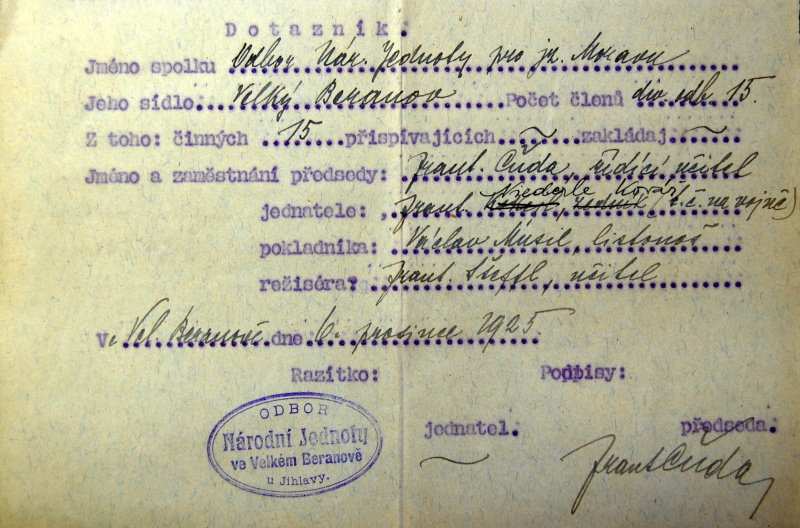 Dotazník.
Jméno spolku Odbor Nár. Jednoty pro jz. Moravu
Jeho sídlo Velký Beranov Počet členů div. odb. 15.
Z toho: činných 15 přispívajících ~ zakládaj. ~
Jméno a zaměstnání předsedy: Frant. Čuda, řídící učitel
Niederle Kovář
jednatele: Frant. (t. č. na vojně)
pokladníka: Václav Musil, listonoš
režiséra? Frant. učitel
V. Vel. Beranově dne 6. prosince 1925.
Razítko: Podpisy:
jednatel. předseda.
~ Frant Čuda
ODBOR
Národní Jednoty
ve Velkém Beranově
u Jihlavy.